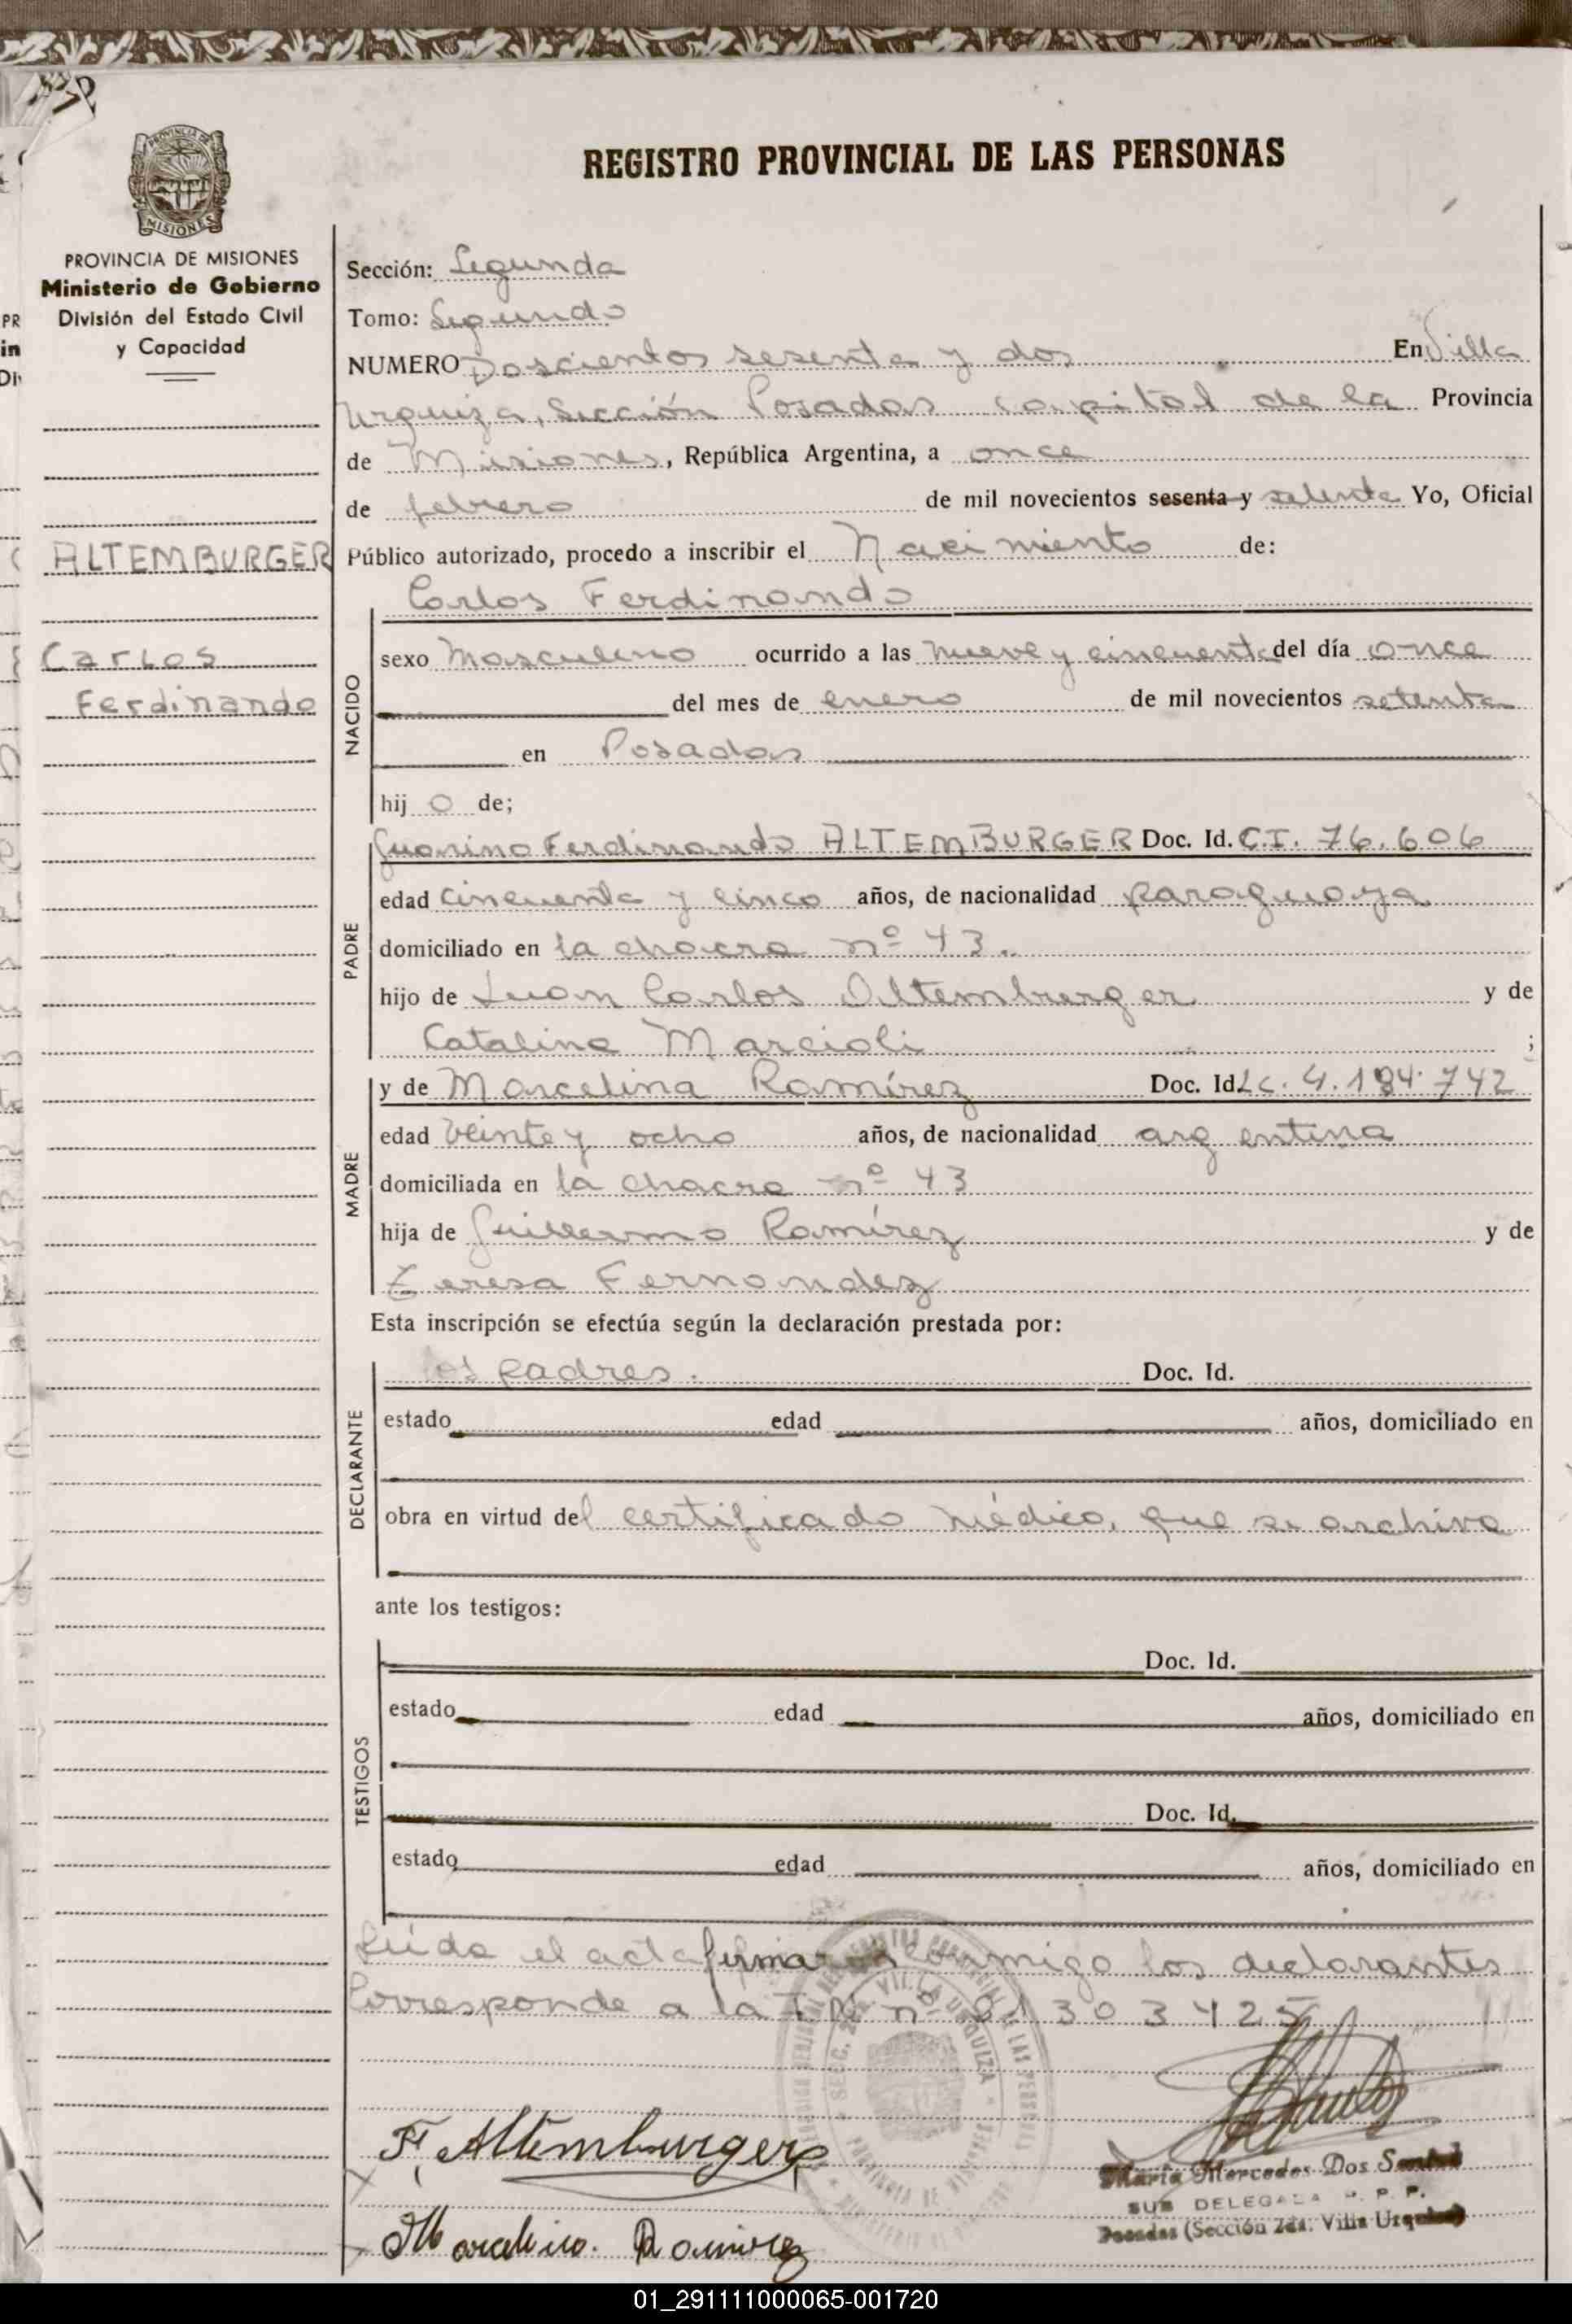 REGISTRO PROVINCIAL DE LAS PERSONAS
PROVINCIA DE
MISIONES
PROVINCIA DE MISIONES
Ministerio de Gobierno
División del Estado Civil
y Capacidad
ALTEMBURGER
Carlos
Ferdinando
Sección: Segunda
Tomo: Segundo
NUMERO Doscientos sesenta y dos En Villa
Urquiza, Sección Posadas capital de la Provincia
de Misiones, República Argentina, a once
de febrero de mil novecientos sesenta y setenta Yo, Oficial
Público autorizado, procedo a inscribir el Nacimiento de:
Carlos Ferdinando
NACIDO
sexo Masculino ocurrido a las nueve y cincuenta del día once
del mes de enero de mil novecientos setenta
en Posadas
hij o de;
PADRE
Ferdinando ALTEMBURGER Doc. Id. C.I. 76.606
edad cincuenta y cinco años, de nacionalidad paraguaya
domiciliado en la chacra nº 43.
hijo de Juan Carlos Altemburger y de
Catalina Marcioli ;
MADRE
y de Marcelina Ramírez Doc. Id LC. 4.184.742
edad veinte y ocho años, de nacionalidad argentina
domiciliada en la chacra nº 43
hija de Guillermo Ramírez y de
Teresa Fernandez
Esta inscripción se efectúa según la declaración prestada por:
DECLARANTE
los padres. Doc. Id.
estado edad años, domiciliado en
obra en virtud del certificado médico, que se archiva
ante los testigos:
TESTIGOS
Doc. Id.
estado edad años, domiciliado en
Doc. Id.
estado edad años, domiciliado en
Leída el acta firmaron conmigo los declarantes
Corresponde a la nº 303425
F. Altemburger
Marcelina Ramirez
María Mercedes Dos Santos
SUB DELEGADA R. P. P.
Posadas (Sección 2da. Villa Urquiza)
01_291111000065-001720